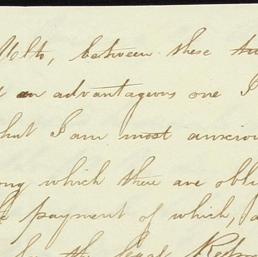 Ulto, between these
an advantageous one I
that I am most anxious
which there are obli
payment of which, a
the legal